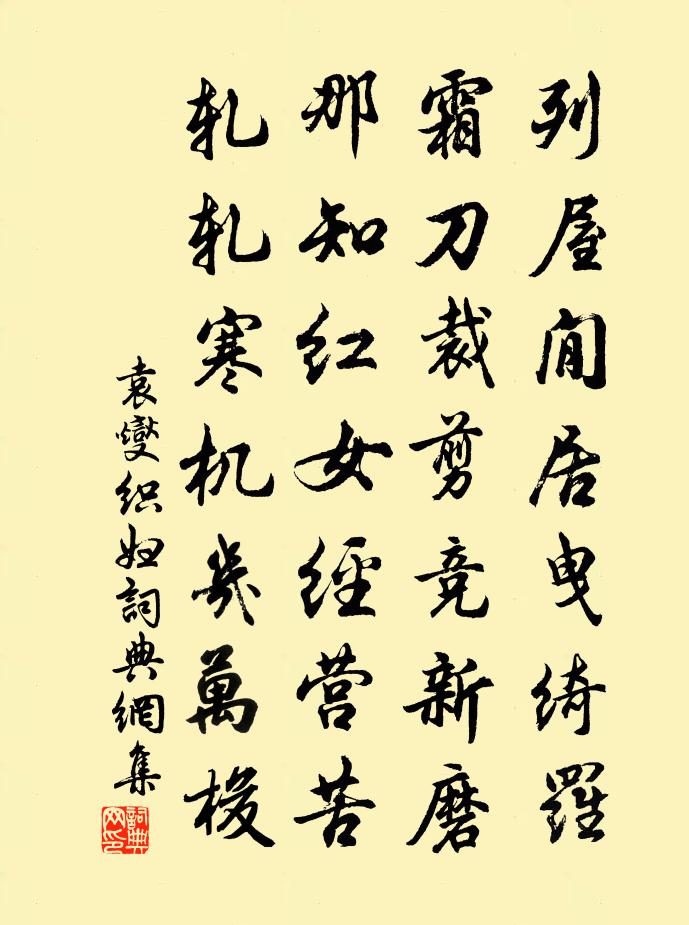 列屋閒居曳绮羅
霜刀裁剪竞新磨
那知红女經营苦
轧轧寒机幾萬梭
袁燮织妇詞典網集
詞典网印